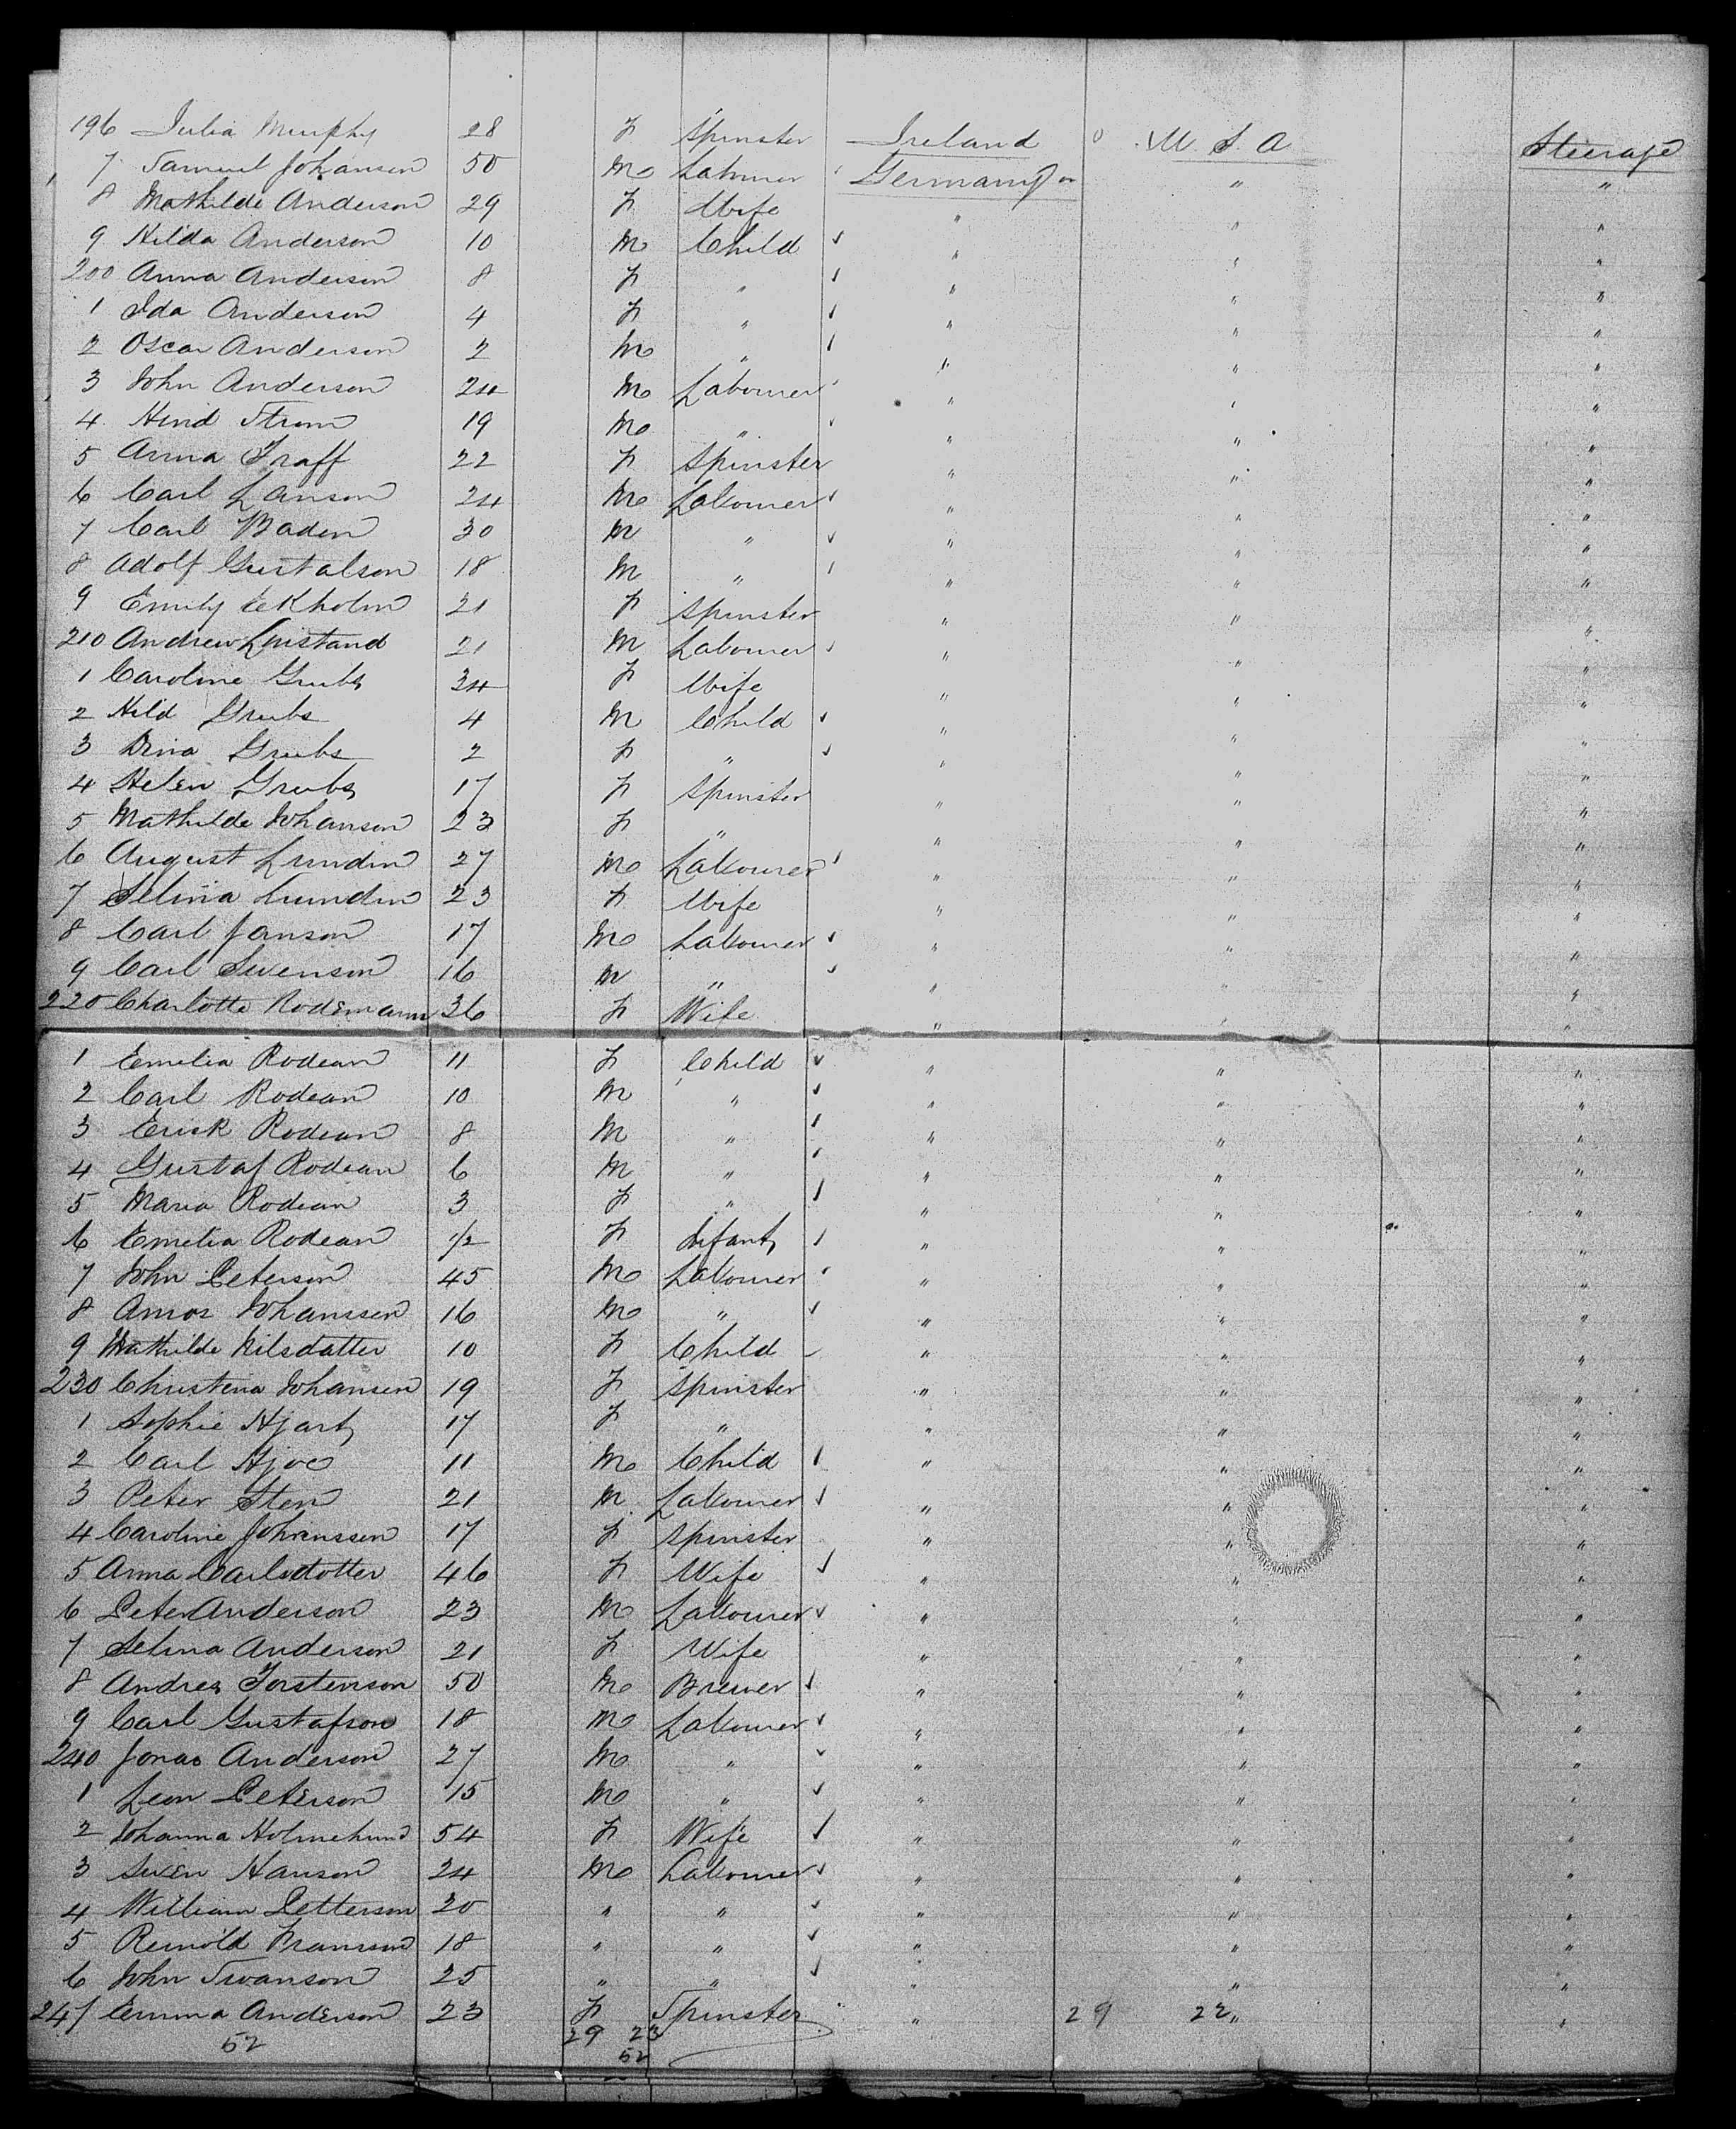 196 Julia Murphy 28 F Spinster Ireland U. S. A Steerage
7 Samuel Johanson 50 M Labourer Germany " "
8 Mathilde Anderson 29 F Wife " " "
9 Hilda Anderson 10 M Child " " "
200 Anna Anderson 8 F " " " "
1 Ida Anderson 4 F " " " "
2 Oscar Anderson 2 M " " " "
3 John Anderson 24 M Labourer " " "
4 Hind Strom 19 M " " " "
5 Anna Traff 22 F Spinster " " "
6 Carl Lanson 24 M Labourer " " "
7 Carl Baden 30 M " " " "
8 Adolf Gustalson 18 M " " " "
9 Emily Eekholm 21 F Spinster " " "
210 Andrew 21 M Labourer " " "
1 Caroline Grubs 34 F Wife " " "
2 Hild Grubs 4 M Child " " "
3 Dina Grubs 2 F " " " "
4 Helen Grubs 17 F Spinster " " "
5 Mathilde Johanson 23 F " " " "
6 August Lundin 27 M Labourer " " "
7 Selina Lundin 23 F Wife " " "
8 Carl Janson 17 M Labourer " " "
9 Carl Swenson 16 M " " " "
220 Charlotte Rodemann 36 F Wife " " "
1 Emelia Rodean 11 F Child " " "
2 Carl Rodean 10 M " " " "
3 Erick Rodean 8 M " " " "
4 Gustaf Rodean 6 M " " " "
5 Maria Rodean 3 F " " " "
6 Emelia Rodean 1/2 F Infant " " "
7 John Peterson 45 M Labourer " " "
8 Amos Johanssen 16 M " " " "
9 Mathilde Nilsdatter 10 F Child " " "
230 Christina Johansen 19 F Spinster " " "
1 Sophie Hjart 17 F " " " "
2 Carl Hjoe 11 M Child " " "
3 Peter Sten 21 M Labourer " " "
4 Caroline Johanssen 17 F Spinster " " "
5 Anna Carlsdotter 46 F Wife " " "
6 Peter Anderson 23 M Labourer " " "
7 Selina Anderson 21 F Wife " " "
8 Andres Torstenson 50 M Brewer " " "
9 Carl Gustafson 18 M Labourer " " "
240 Jonas Anderson 27 M " " " "
1 Leon Peterson 15 M " " " "
2 Johanna 54 F Wife " " "
3 Swen Hanson 24 M Labourer " " "
4 William Petterson 20 " " " " "
5 Reinold 18 " " " " "
6 John Swanson 25 " " " " "
247 Emma Anderson 23 F Spinster " 29 22 " "
52 29 23
52